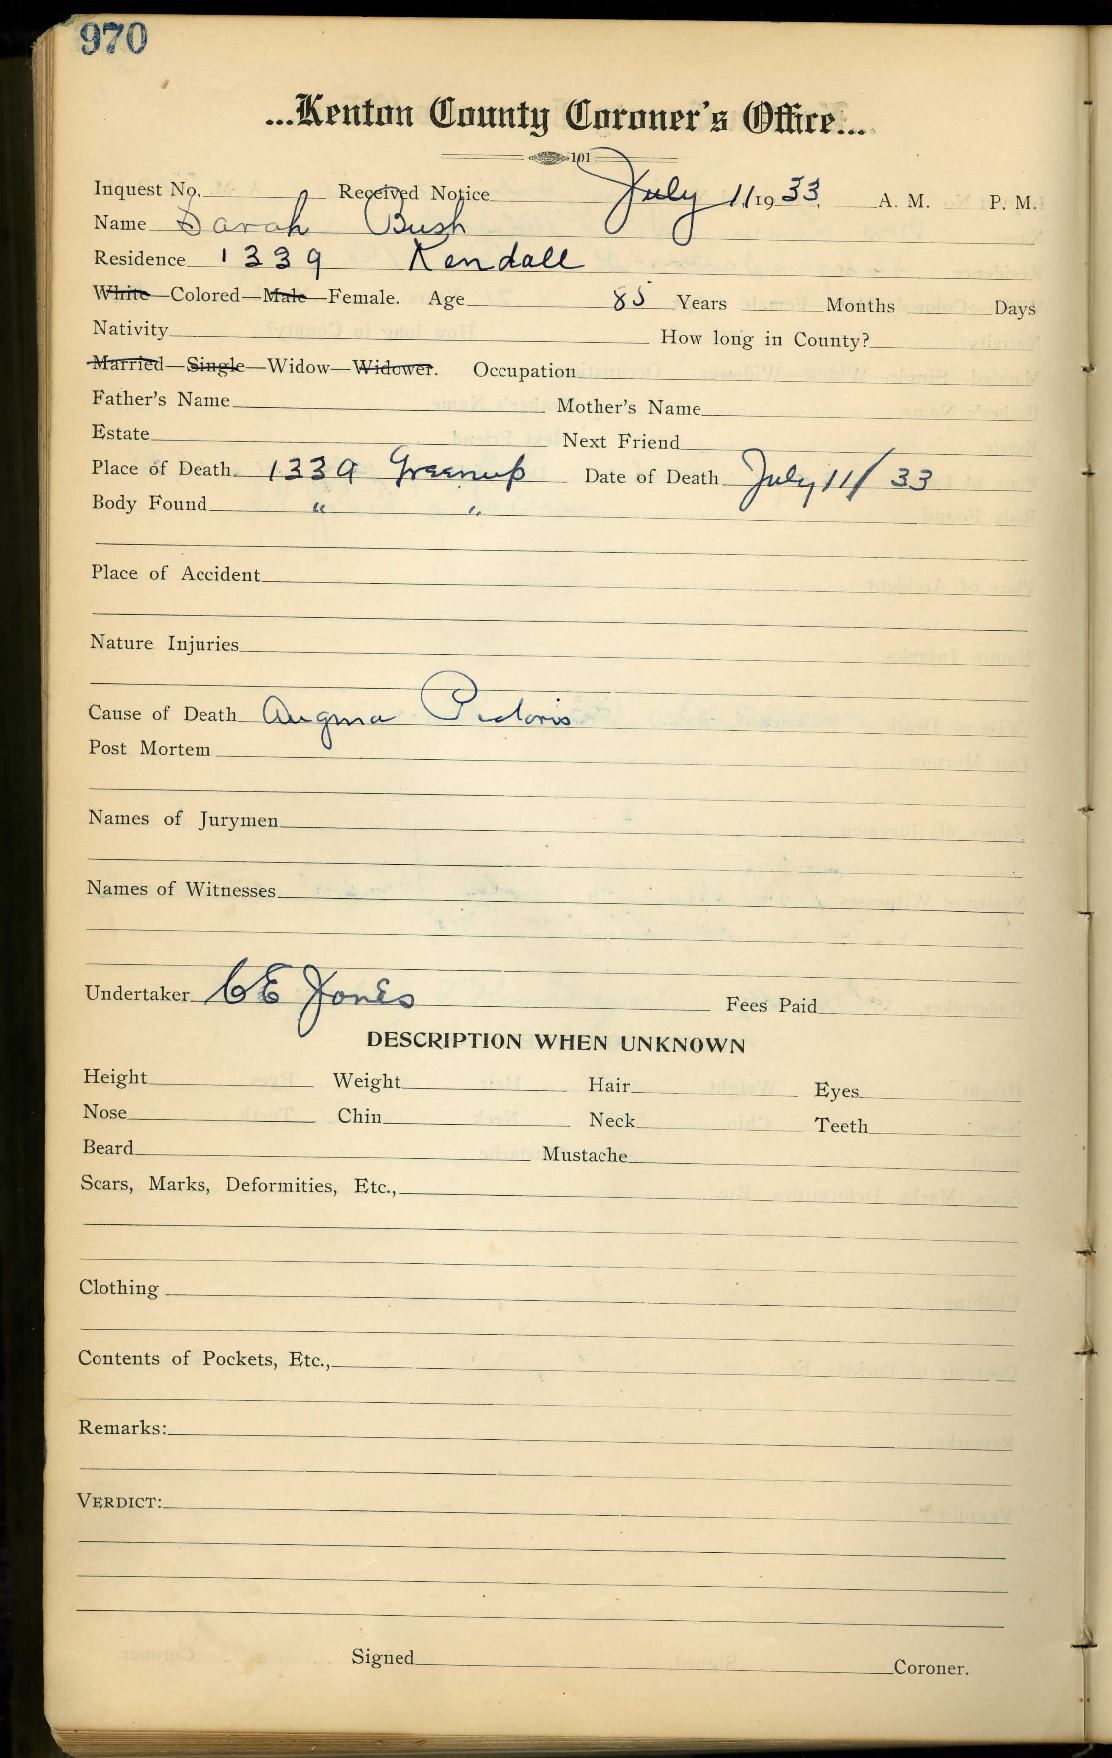 970
...Kenton County Coroner's Office...
101
Inquest No. Received Notice July 11 1933, A. M. P. M.
Name Sarah Bush
Residence 1339 Kendall
White—Colored—Male—Female. Age 85 Years Months Days
Nativity How long in County?
Married—Single—Widow—Widower. Occupation
Father's Name Mother's Name
Estate Next Friend
Place of Death 1339 Greenup Date of Death July 11/ 33
Body Found " "
Place of Accident
Nature Injuries
Cause of Death Angina Pectoris
Post Mortem
Names of Jurymen
Names of Witnesses
Undertaker CE Jones Fees Paid
DESCRIPTION WHEN UNKNOWN
Height Weight Hair Eyes
Nose Chin Neck Teeth
Beard Mustache
Scars, Marks, Deformities, Etc.,
Clothing
Contents of Pockets, Etc.,
Remarks:
VERDICT:
Signed Coroner.